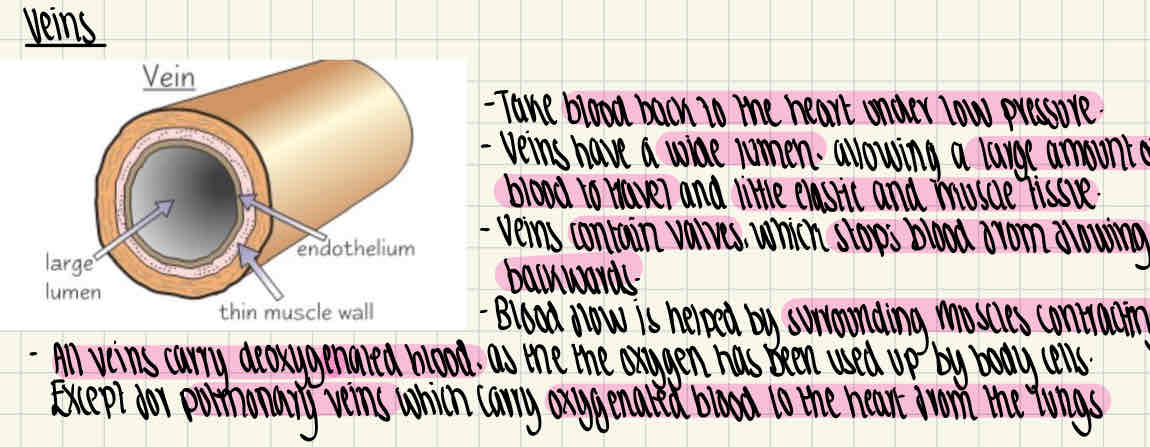 Veins
Vein
large
lumen
endothelium
thin muscle wall
-Take blood back to the heart under low pressure.
- Veins have a wide lumen. allowing a large amount o
blood to travel and little elastic and muscle tissue.
- Veins contain valves, which stops blood from flowing
backwards.
- Blood flow is helped by surrounding muscles contractin
- All veins carry deoxygenated blood, as the the oxygen has been used up by body cells.
Except for pulmonary veins which carry oxygenated blood to the heart from the lungs